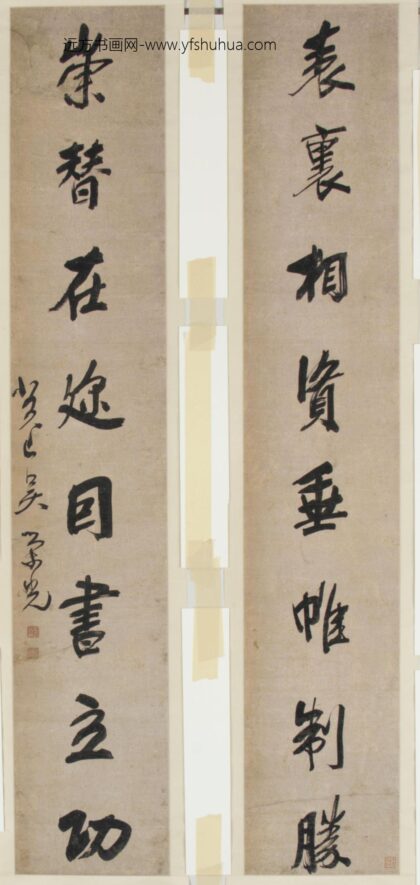 远方书画网-www.yfshuhua.com
表裏相資垂帷制勝
崇替在選因書立功
癸巳吳榮光